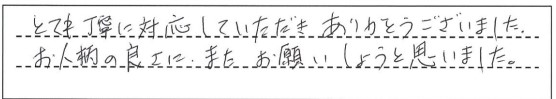 とても丁寧に対応していただきありがとうございました.
お人柄の良さに、また お願いしようと思いました。